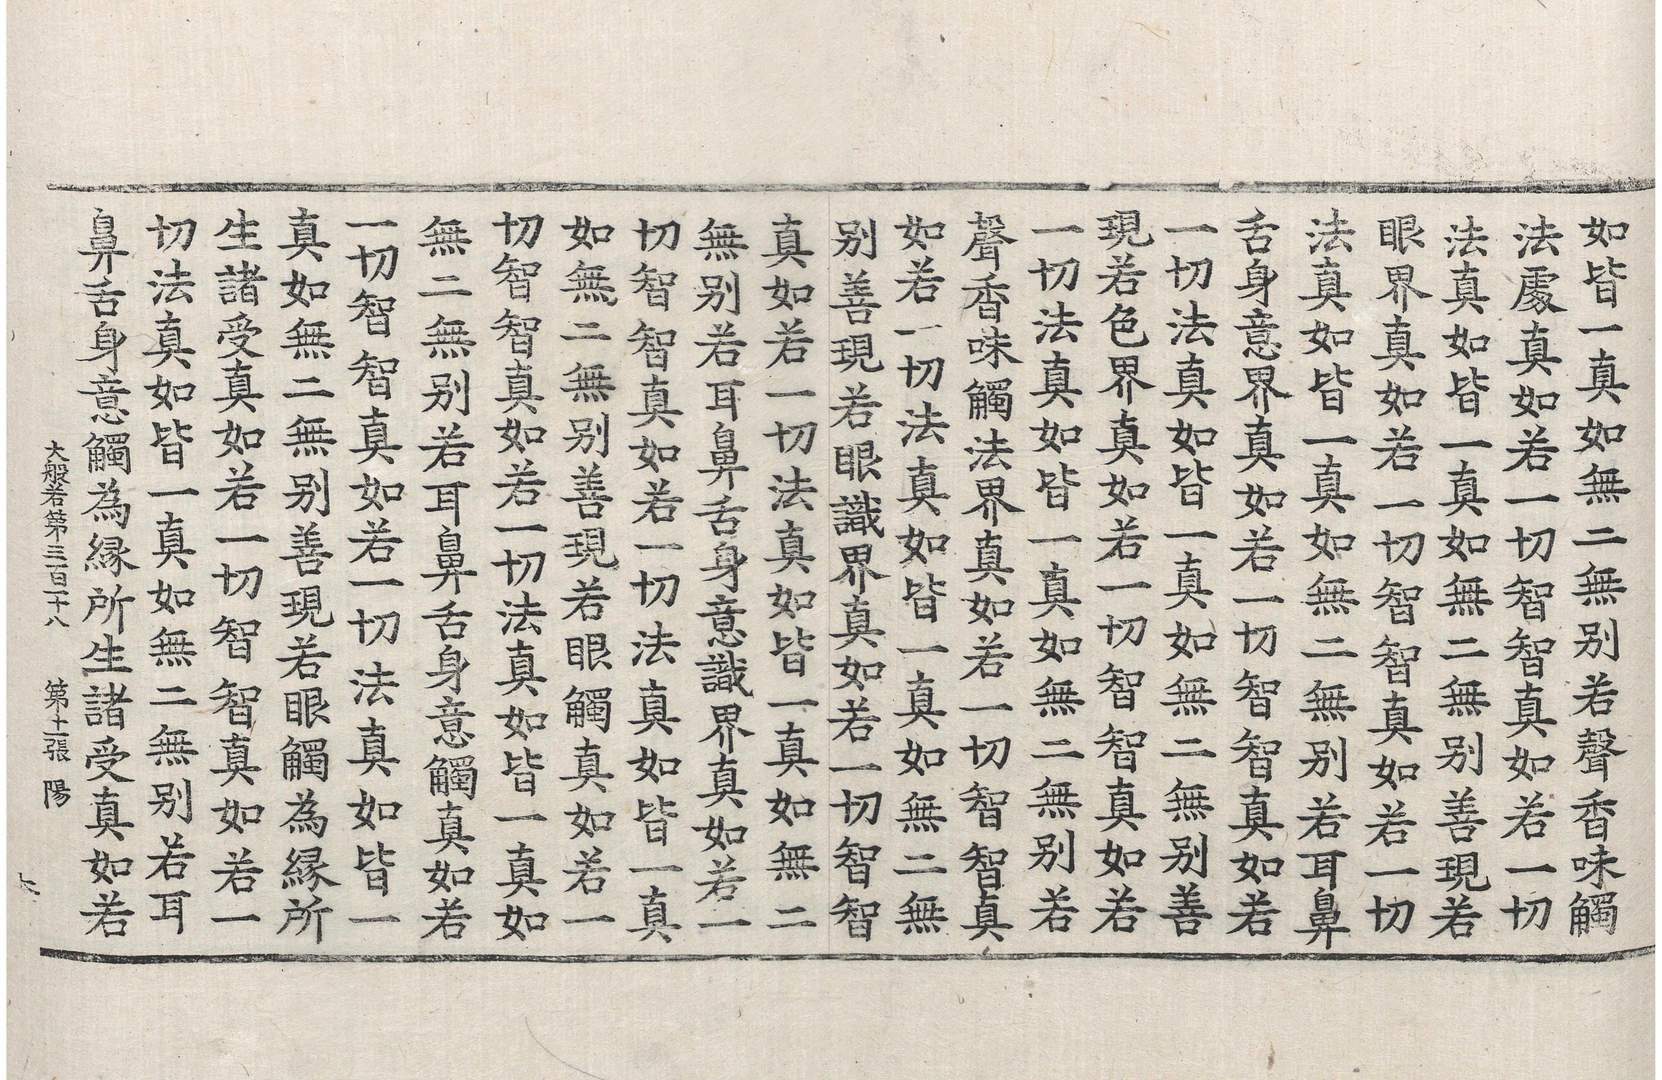 如皆一真如無二無别若聲香味觸
法處真如若一切智智真如若一切
法真如皆一真如無二無别善現若
眼界真如若一切智智真如若一切
法真如皆一真如無二無别若耳鼻
舌身意界真如若一切智智真如若
一切法真如皆一真如無二無别善
現若色界真如若一切智智真如若
一切法真如皆一真如無二無别若
聲香味觸法界真如若一切智智真
如若一切法真如皆一真如無二無
别善現若眼識界真如若一切智智
真如若一切法真如皆一真如無二
無别若耳鼻舌身意識界真如若一
切智智真如若一切法真如皆一真
如無二無别善現若眼觸真如若一
切智智真如若一切法真如皆一真如
無二無别若耳鼻舌身意觸真如若
一切智智真如若一切法真如皆一
真如無二無别善現若眼觸為縁所
生諸受真如若一切智智真如若一
切法真如皆一真如無二無别若耳
鼻舌身意觸為縁所生諸受真如若
大般若第三百二十八 第十一張 陽